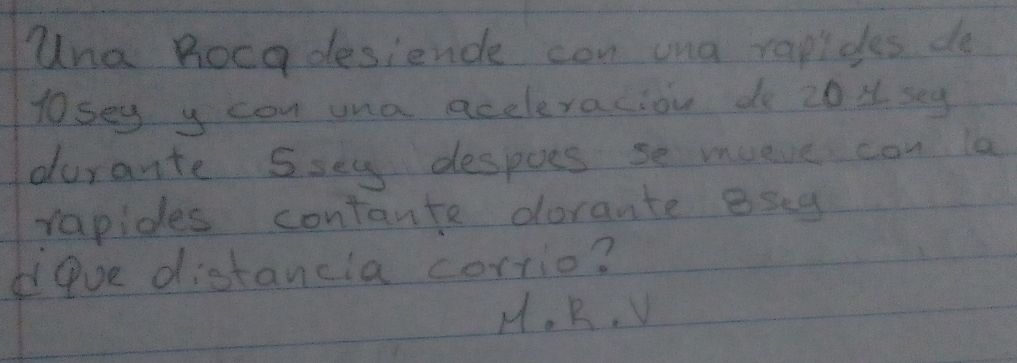 Una Roca desiende con una rapides de
10 seg y con una aceleración de 20 seg
durante 5 seg despues se mueve con la
rapides contante dorante 8 seg
¿Que distancia corrio?
M.R.V